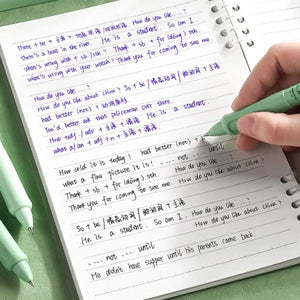 There + be + 主语 + 地点
How do you like ... ?
There's a book in the river. He is a student. So am I.
what's wrong with + sb / sth? Thank + sb + for (doing) sth.
what's wrong with your watch? Thank you for coming to see me
How do you like ... ?
How do you like about China? So + be / 情态动词 / 助动词 + 主语
had better (not) + 动词原形
You'd better ask that policeman over there.
How + adj / adv + 主语 + 谓语 He is a student.
what a / an + adj + n + 主语 + 谓语
How cold it is today! had better (not) +
what a fine picture it is! ... not ... until
Thank + sb + for (doing) sth. How do you like ... ?
Thank you for coming to see me. How do you like about China?
So + be / 情态动词 / 助动词 + 主语
He is a student. So am I. How do you like ... ?
How do you like about China?
... not ... until
He didn't have supper until his parents came back.